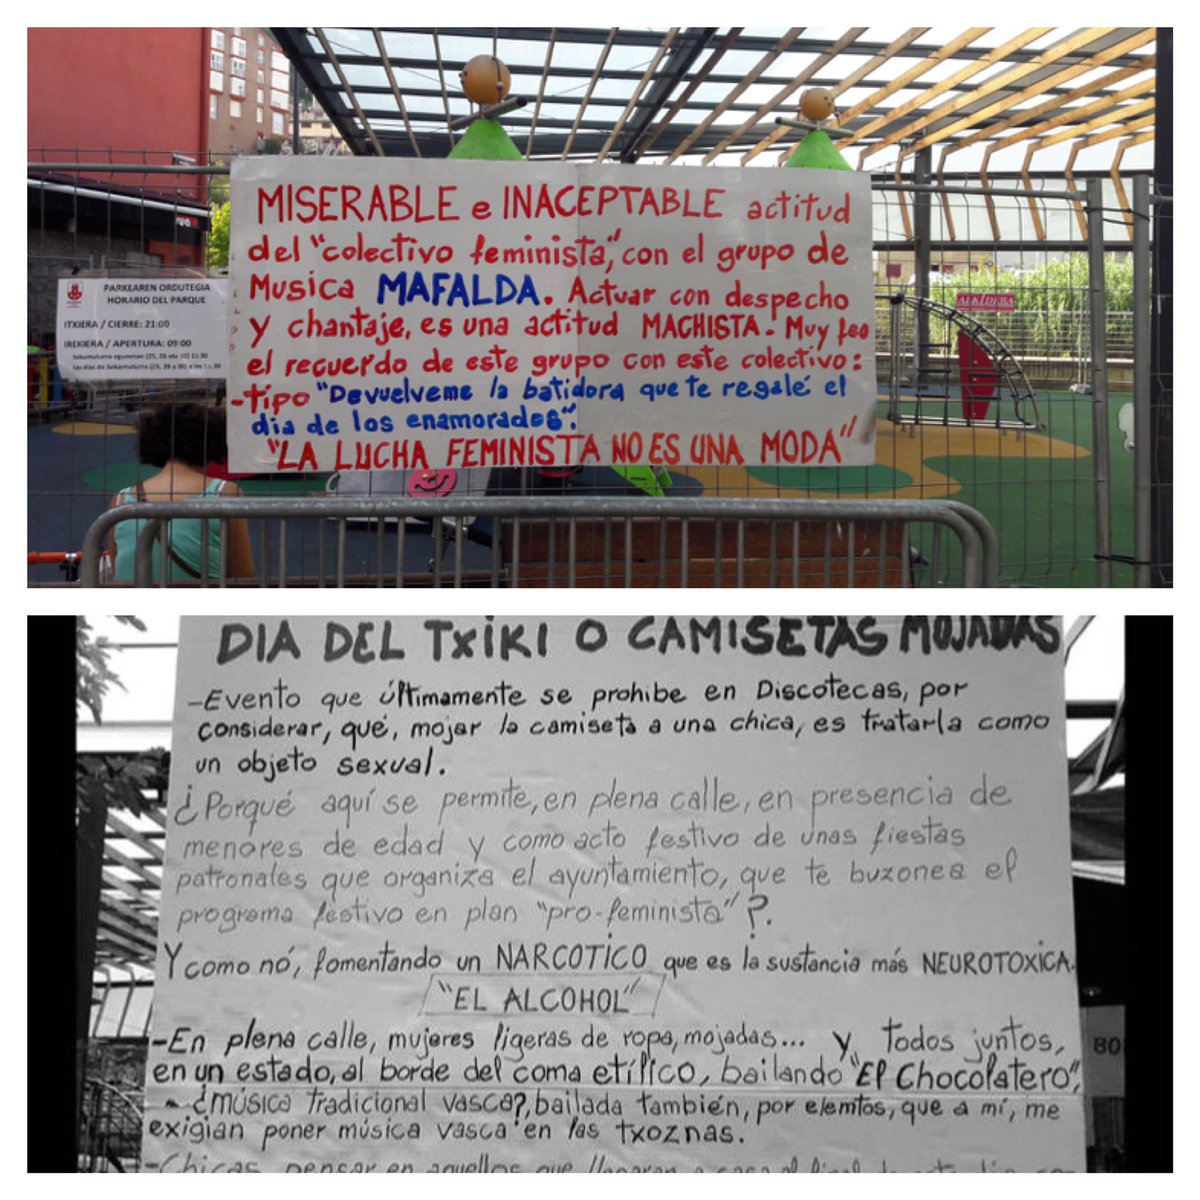 MISERABLE e INACEPTABLE actitud
del "colectivo feminista", con el grupo de
Musica MAFALDA. Actuar con despecho
y chantaje, es una actitud MACHISTA. Muy feo
el recuerdo de este grupo con este colectivo:
-tipo "Devuelveme la batidora que te regalé el
dia de los enamorados".
"LA LUCHA FEMINISTA NO ES UNA MODA"
PARKEAREN ORDUTEGIA
HORARIO DEL PARQUE
ITXIERA / CIERRE: 21:00
IREKIERA / APERTURA: 09:00
Sokamuturra egunetan (25, 26 eta 30) 11:30
Los días de Sokamuturra (25, 26 y 30) a las 11:30
ALKIDEBA
DIA DEL TXIKI O CAMISETAS MOJADAS
-Evento que últimamente se prohibe en Discotecas, por
considerar, qué, mojar la camiseta a una chica, es tratarla como
un objeto sexual.
¿Porqué aquí se permite, en plena calle, en presencia de
menores de edad y como acto festivo de unas fiestas
patronales que organiza el ayuntamiento, que te buzonea el
programa festivo en plan "pro-feminista"?.
Y como nó, fomentando un NARCOTICO que es la sustancia más NEUROTOXICA.
"EL ALCOHOL"
-En plena calle, mujeres ligeras de ropa, mojadas... y, todos juntos,
en un estado, al borde del coma etílico, bailando "El Chocolatero",
- ¿música tradicional vasca?, bailada también, por elemtos, que a mí, me
exigian poner música vasca en las txoznas.
-Chicas, pensar en aquellos que llegaran a casa al final de este día con
BO